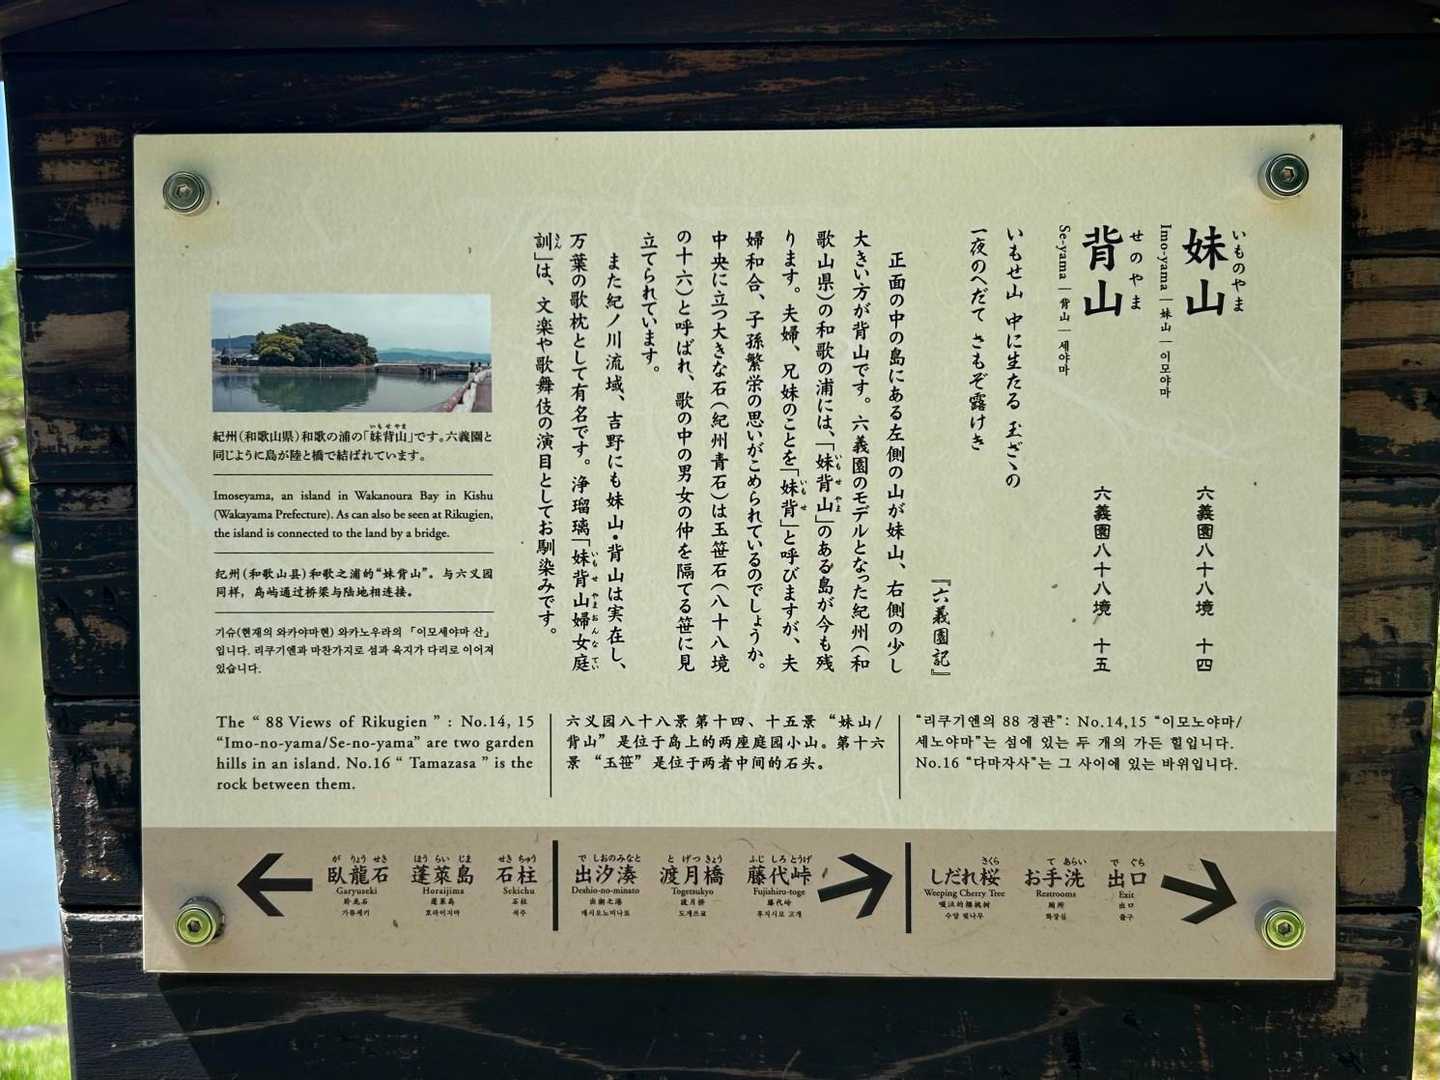 妹山
いものやま
Imo-yama | 妹山 | 이모야마
六義園八十八境　十四
背山
せのやま
Se-yama | 背山 | 세야마
六義園八十八境　十五
いもせ山 中に生たる 玉ざゝの
一夜のへだて さもぞ露けき
『六義園記』
正面の中の島にある左側の山が妹山、右側の少し
大きい方が背山です。六義園のモデルとなった紀州（和
歌山県）の和歌の浦には、「妹背山」のある島が今も残
いもせやま
ります。夫婦、兄妹のことを「妹背」と呼びますが、夫
いもせ
婦和合、子孫繁栄の思いがこめられているのでしょうか。
中央に立つ大きな石（紀州青石）は玉笹石（八十八境
の十六）と呼ばれ、歌の中の男女の仲を隔てる笹に見
立てられています。
また紀ノ川流域、吉野にも妹山・背山は実在し、
万葉の歌枕として有名です。浄瑠璃「妹背山婦女庭
いもせやまおんなてい
訓」は、文楽や歌舞伎の演目としてお馴染みです。
きん
紀州（和歌山県）和歌の浦の「妹背山」です。六義園と
いもせやま
同じように島が陸と橋で結ばれています。
Imoseyama, an island in Wakanoura Bay in Kishu
(Wakayama Prefecture). As can also be seen at Rikugien,
the island is connected to the land by a bridge.
纪州（和歌山县）和歌之浦的“妹背山”。与六义园
同样，岛屿通过桥梁与陆地相连接。
기슈(현재의 와카야마현) 와카노우라의 「이모세야마 산」
입니다. 리쿠기엔과 마찬가지로 섬과 육지가 다리로 이어져
있습니다.
The “ 88 Views of Rikugien ” : No.14, 15
“Imo-no-yama/Se-no-yama” are two garden
hills in an island. No.16 “ Tamazasa ” is the
rock between them.
六义园八十八景 第十四、十五景 “妹山/
背山” 是位于岛上的两座庭园小山。第十六
景 “玉笹” 是位于两者中间的石头。
“리쿠기엔의 88 경관”: No.14,15 “이모노야마/
세노야마”는 섬에 있는 두 개의 가든 힐입니다.
No.16 “다마자사”는 그 사이에 있는 바위입니다.
がりょうせき
臥龍石
Garyuseki
卧龙石
가류세키
ほうらいじま
蓬莱島
Horaijima
蓬莱岛
호라이지마
せきちゅう
石柱
Sekichu
石柱
석주
でしおのみなと
出汐湊
Deshio-no-minato
出潮之港
데시오노미나토
とげつきょう
渡月橋
Togetsukyo
渡月桥
도게쓰쿄
ふじしろとうげ
藤代峠
Fujishiro-toge
藤代岭
후지시로 고개
さくら
しだれ桜
Weeping Cherry Tree
수양 벚나무
てあらい
お手洗
Restrooms
厕所
화장실
でぐち
出口
Exit
出口
출구